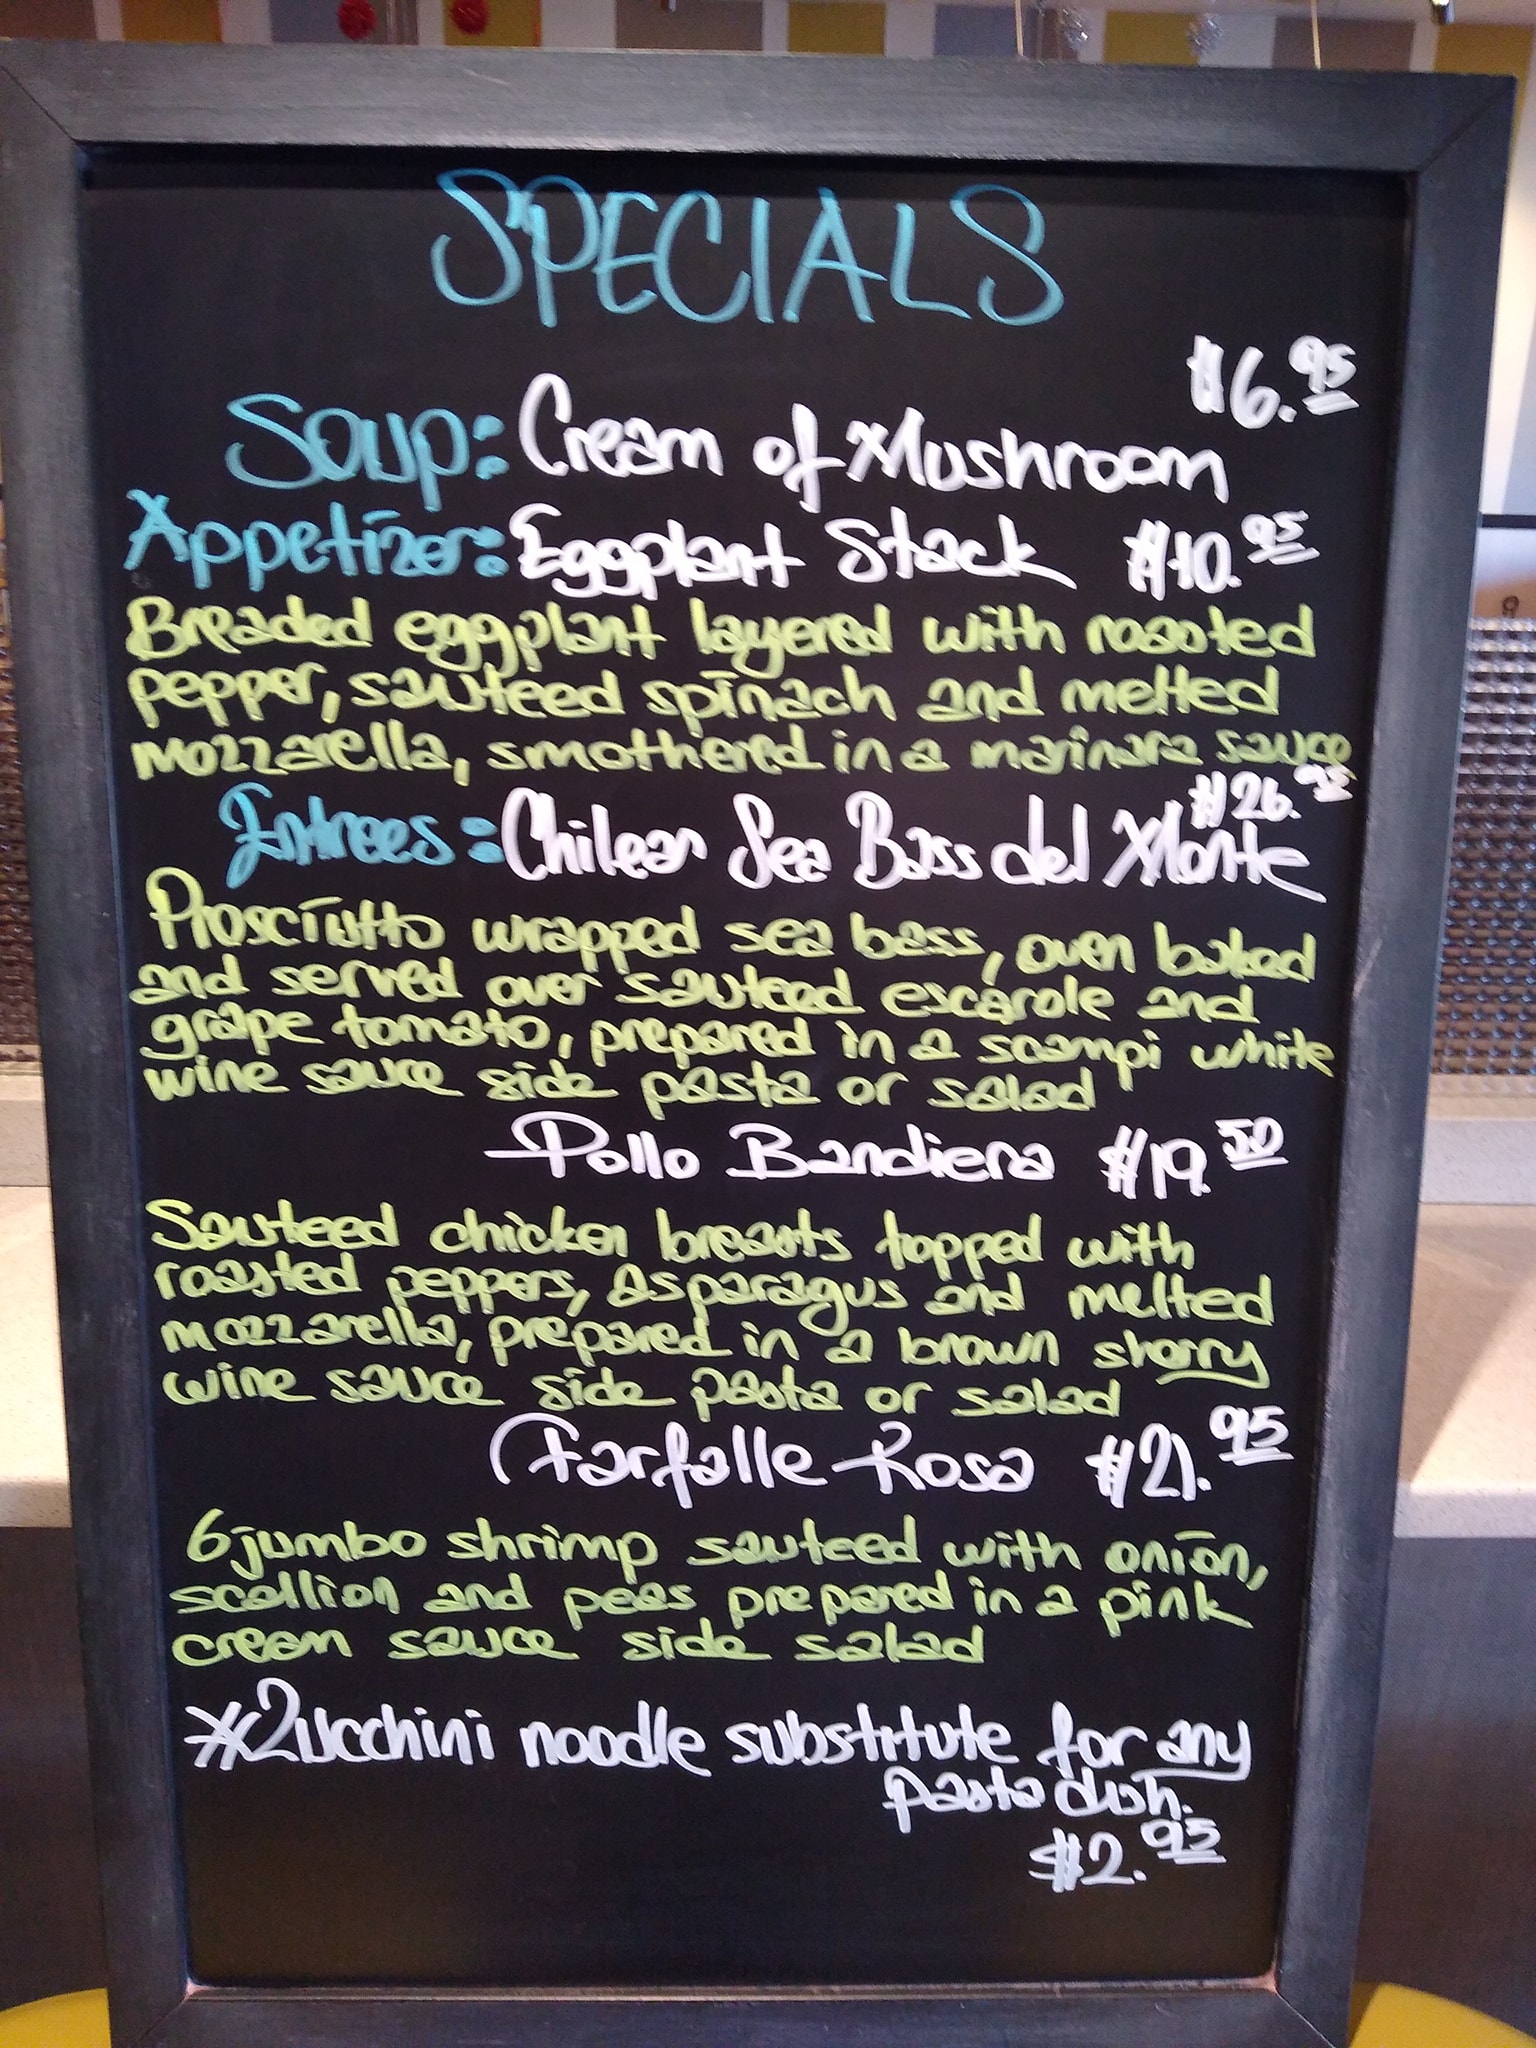 SPECIALS
$6.95
Soup: Cream of Mushroom
Appetizer: Eggplant Stack $10.95
Breaded eggplant layered with roasted
pepper, sauteed spinach and melted
mozzarella, smothered in a marinara sauce
$26.95
Entrees: Chilean Sea Bass del Monte
Prosciutto wrapped sea bass, oven baked
and served over sauteed escarole and
grape tomato, prepared in a scampi white
wine sauce side pasta or salad
Pollo Bandiera $19.50
Sauteed chicken breasts topped with
roasted peppers, asparagus and melted
mozzarella, prepared in a brown sherry
wine sauce side pasta or salad
Farfalle Rosa $21.95
6 jumbo shrimp sauteed with onion,
scallion and peas prepared in a pink
cream sauce side salad
*Zucchini noodle substitute for any
pasta dish.
$2.95